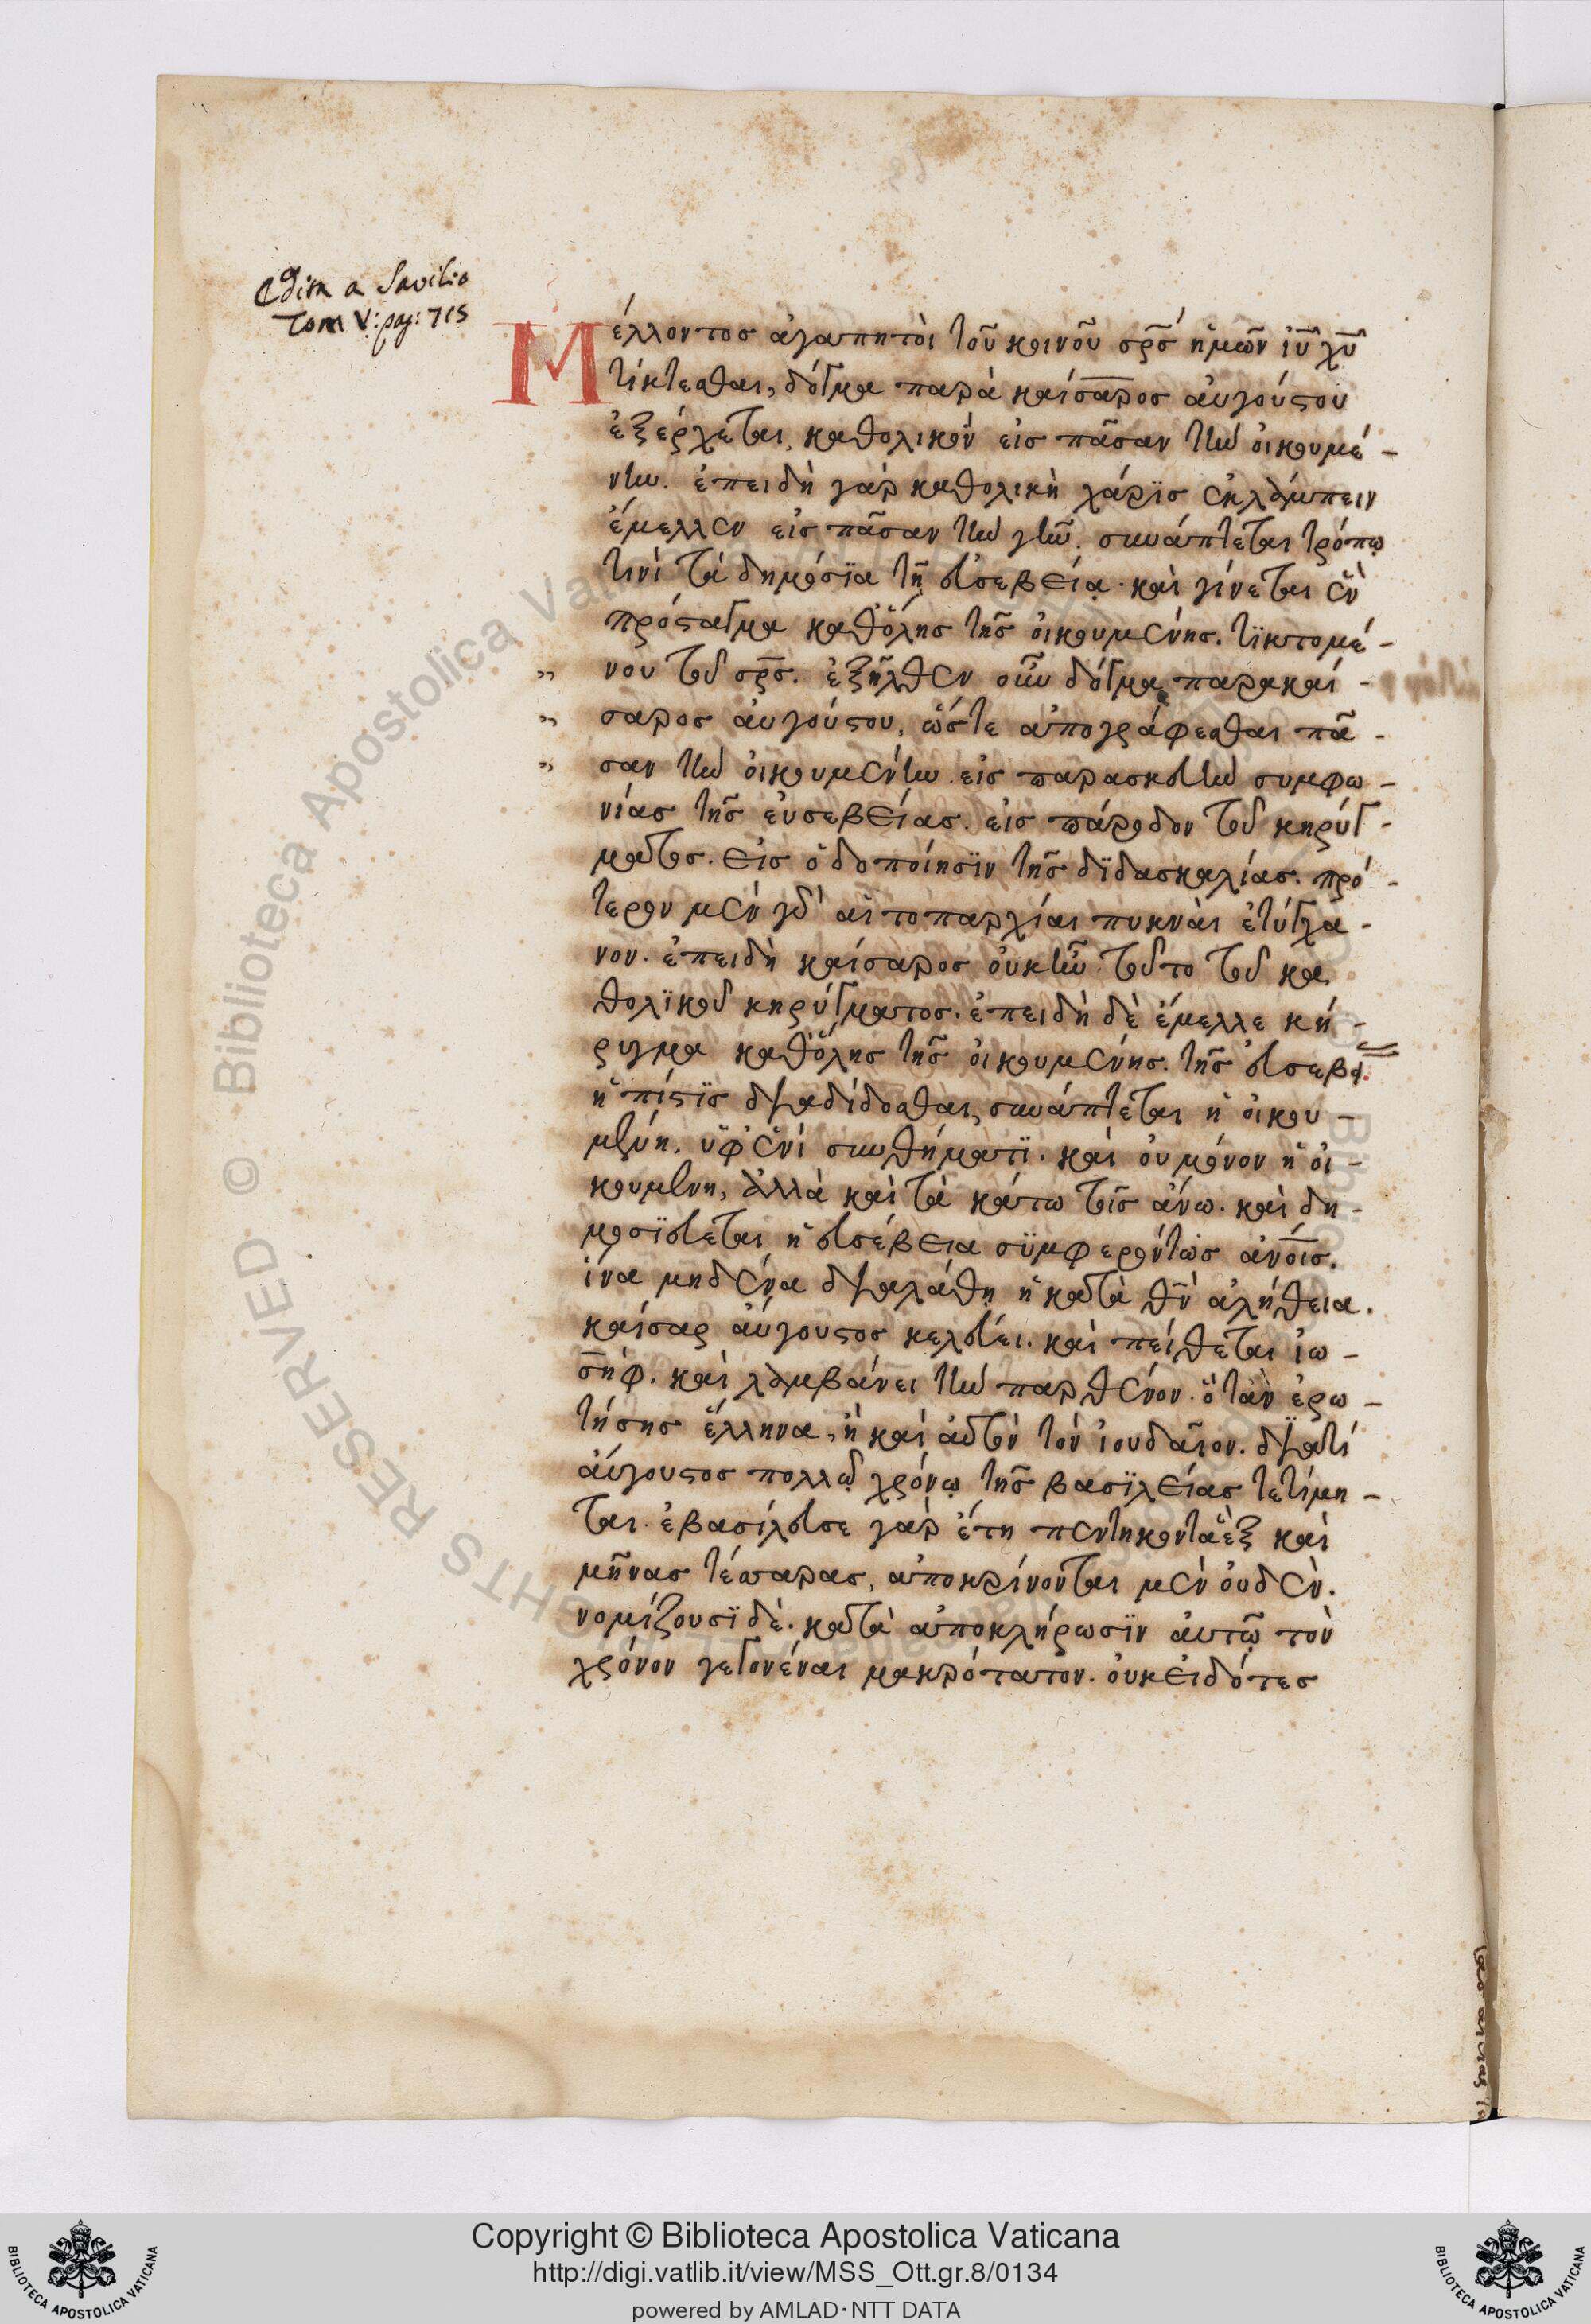 Edita a Savilio
Tom V: pag: 715
Μέλλοντος ἀγαπητοὶ τοῦ κοινοῦ σρ̅ς ἡμῶν ἰυ̅ χυ̅
τίκτεσθαι, δόγμα παρὰ καίσαρος ἀυγούστου
ἐξέρχεται, καθολικὸν εἰς πᾶσαν τὴν ὀικουμέ-
νην. ἐπειδὴ γὰρ καθολικὴ χάρϊς ἐκλάμπειν
ἔμελλεν εἰς πᾶσαν τὴν γῆν. συνάπτεται τρόπῳ
τινὶ τὰ δημόσϊα τῇ ἐυσεβείᾳ. καὶ γίνεται ἓν
πρόσταγμα καθόλης τῆς ὀικουμένης. τϊκτομέ-
νου τοῦ σρ̅ς. ἐξῆλθεν οὖν δόγμα παρακαί-
σαρος ἀυγούστου, ὥστε ἀπογράφεσθαι πᾶ-
σαν τὴν ὀικουμένην. εἰς παρασκευὴν συμφω-
νίας τῆς ἐυσεβείας. εἰς πάροδον τοῦ κηρύγ-
ματος. εἰς ὁδοποίησϊν τῆς δϊδασκαλίας. πρό-
τερον μὲν γὰρ ἁι τοπαρχίαι πυκναὶ ἐτύγχα-
νον. ἐπειδὴ καίσαρος ὀυκἦν τοῦτο τοῦ κα
θολϊκοῦ κηρύγματος. ἐπειδὴ δὲ ἔμελλε κή-
ρυγμα καθόλης τῆς ὀικουμένης. τῆς ἐυσεβεί.
ἡ πίστϊς διαδίδοσθαι, συνάπτεται ἡ ὀικου-
μένη. ὑφ' ἑνὶ συνθήματϊ. καὶ ὀυ μόνον ἡ ὀι-
κουμένη, ἀλλὰ καὶ τὰ κάτω τοῖς ἄνω. καὶ δη-
μοσϊεύεται ἡ ἐυσέβεια συμφερόντως ἀνο̅ις.
ἵνα μηδένα διαλάθῃ ἡ κατὰ θν̅ ἀλήθεια.
καίσαρ ἄυγουστος κελεύει. καὶ πείθεται ἰω-
σήφ. καὶ λαμβάνει τὴν παρθένον. ὅταν ἐρω-
τήσῃς ἕλληνα, ἢ καὶ ἀυτὸν τὸν ἰουδαῖον. διατί
ἄυγουστος πολλῷ χρόνῳ τῆς βασϊλείας τετίμη-
ται. ἐβασίλευσε γὰρ ἔτη πεντηκονταὲξ καὶ
μῆνας τέσσαρας, ἀποκρίνονται μὲν ὀυδὲν.
νομίζουσϊ δὲ. κατὰ ἀποκλήρωσϊν ἀυτῷ τὸν
χρόνον γεγονέναι μακρότατον. ὀυκ εἰδότες
Copyright © Biblioteca Apostolica Vaticana
http://digi.vatlib.it/view/MSS_Ott.gr.8/0134
powered by AMLAD·NTT DATA